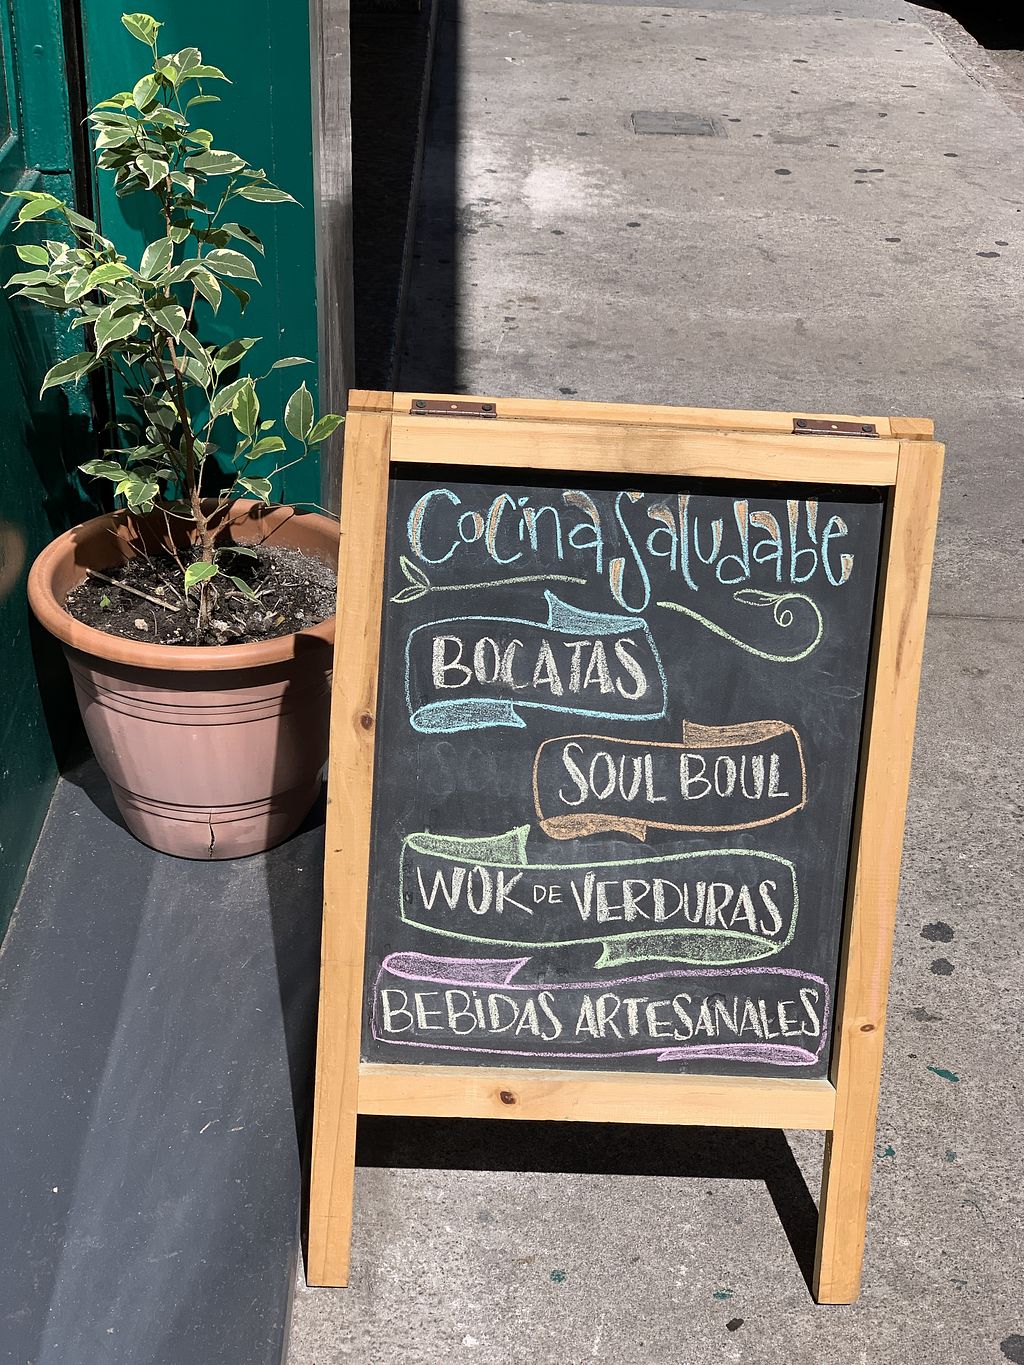 Cocina Saludable
BOCATAS
SOUL BOUL
WOK DE VERDURAS
BEBIDAS ARTESANALES